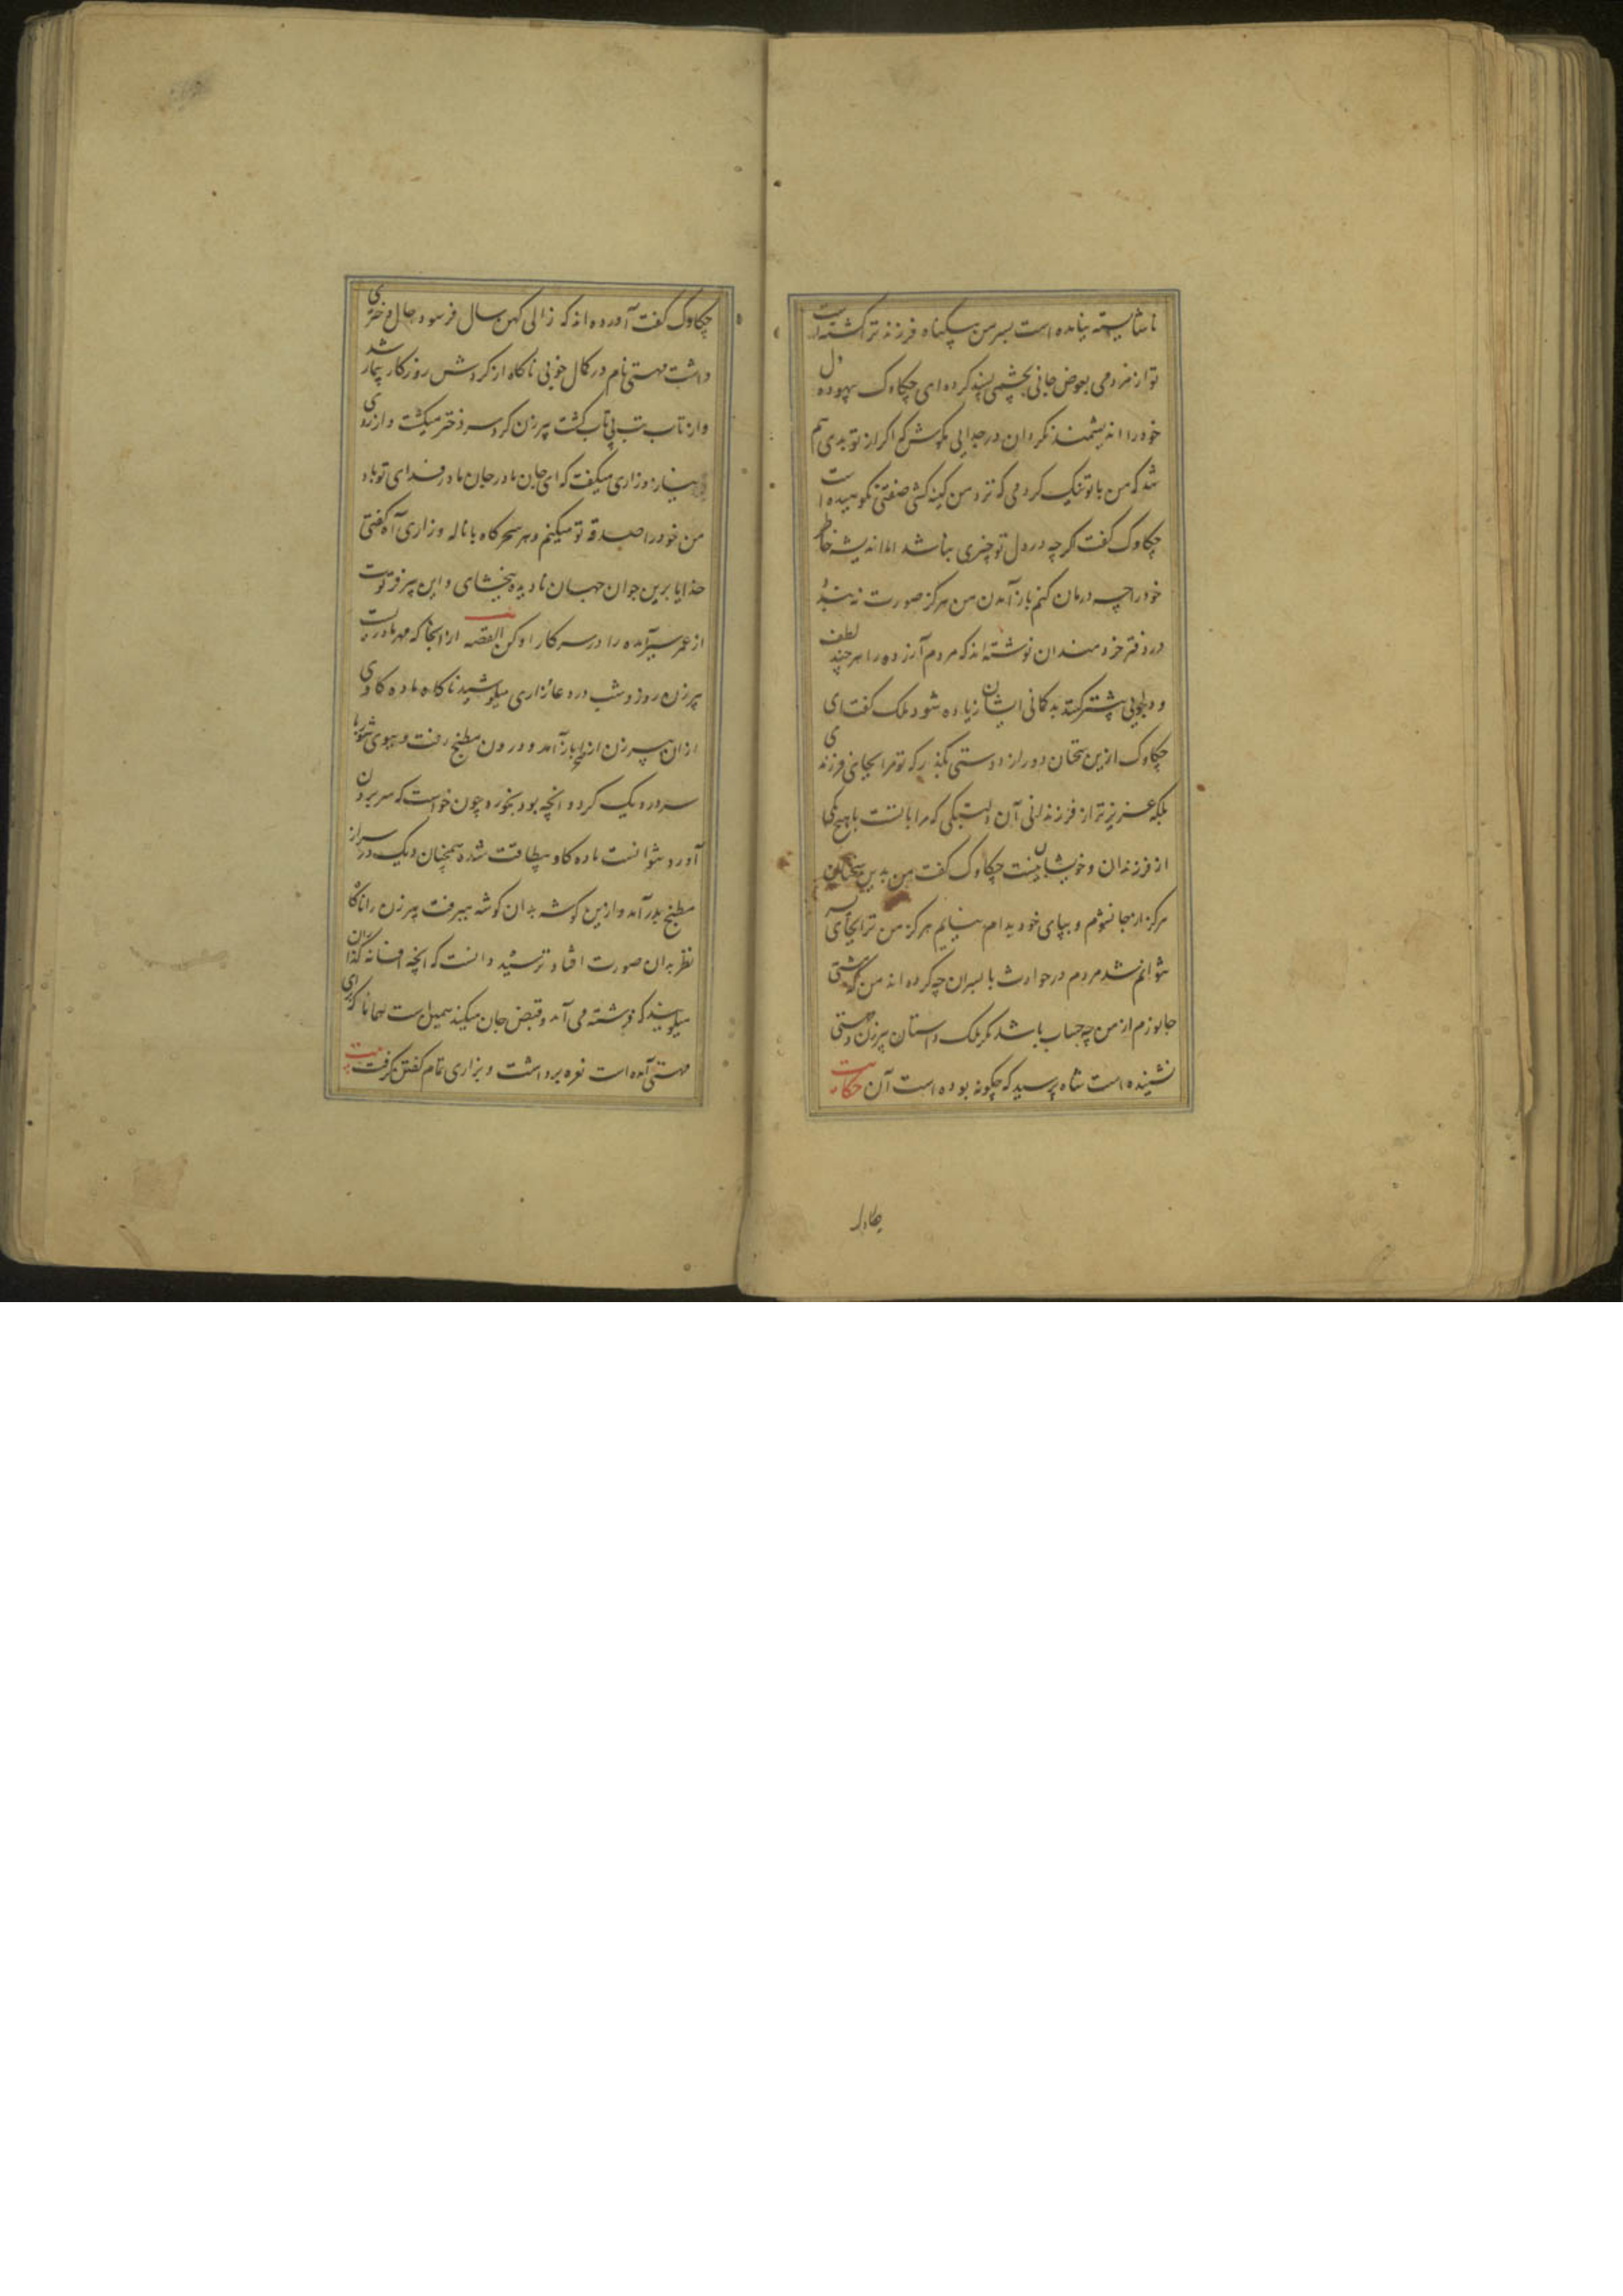 ناشایسته نیامده است پسر من بیگناه فرزند ترا کشته است
تو از مردمی بعوض جانی بچشمی پسند کرده ای چکاوک بیهوده دل
خود را اندیشمند مگردان در جدایی مکوش که اگر از تو بدی
شد که من با تو نیک کردمی که نزد من کینه کشی صفتی نکوهیده است
چکاوک گفت گرچه در دل تو چیزی نباشد اما اندیشه خاطر
خود را چه درمان کنم باز آمدن من هرگز صورت نبندد
در دفتر خردمندان نوشته اند که مردم آزرده را هر چند لطف
و دلجویی بیشتر کنند بدگمانی ایشان زیاده شود ملک گفت ای
چکاوک ازین سخنان دور از دوستی بگذر که تو مرا بجای فرزندی
بلکه عزیزتر از فرزندانی آن دلبستگی که مرا با تست با هیچ یکی
از فرزندان و خویشان نیست چکاوک گفت من بدین سخنان
هرگز از جا نشوم و بپای خود بدام نیایم هرگز من ترا بجای پسر
نتوانم شد مردم در حوادث با پسران چه کرده اند من که مشتی
جانورم از من چه حساب باشد مگر ملک داستان پیرزن و مهستی
نشنیده است شاه پرسید که چگونه بوده است آن حکایت
چکاوک
چکاوک گفت آورده اند که زالی کهن سال فرسوده حال دختری
داشت مهستی نام در کمال خوبی ناگاه از گردش روزگار بیمار شد
و از تاب تب بی تاب گشت پیرزن گرد سر دختر میگشت و از روی
نیاز و زاری میگفت که ای جان مادر جان مادر فدای تو باد
من خود را صدقه تو میکنم و هر سحرگاه با ناله و زاری آه گفتی
خدایا برین جوان جهان نادیده ببخشای و این پیر فرتوت
از عمر سیرآمده را در سر کار او کن القصه از انجا که مهر مادریست
پیرزن روز و شب در دعا و زاری میکوشید ناگاه ماده گاوی
از ان پیرزن از صحرا باز آمد و درون مطبخ رفت و ببوی شوربا
سر در دیک کرد و انچه بود بخورد چون خواست که سر بیرون
آورد نتوانست ماده گاو بیطاقت شده همچنان دیک در سر از
مطبخ بدر آمد و ازین گوشه بدان گوشه میرفت پیرزن را ناگاه
نظر بدان صورت افتاد و ترسید دانست که انچه افسانه گذاران
میگویند که فرشته می آمد و قبض جان میکند همین است همانا که برای
مهستی آمده است نعره برداشت و بزاری تمام گفتن گرفت بیت